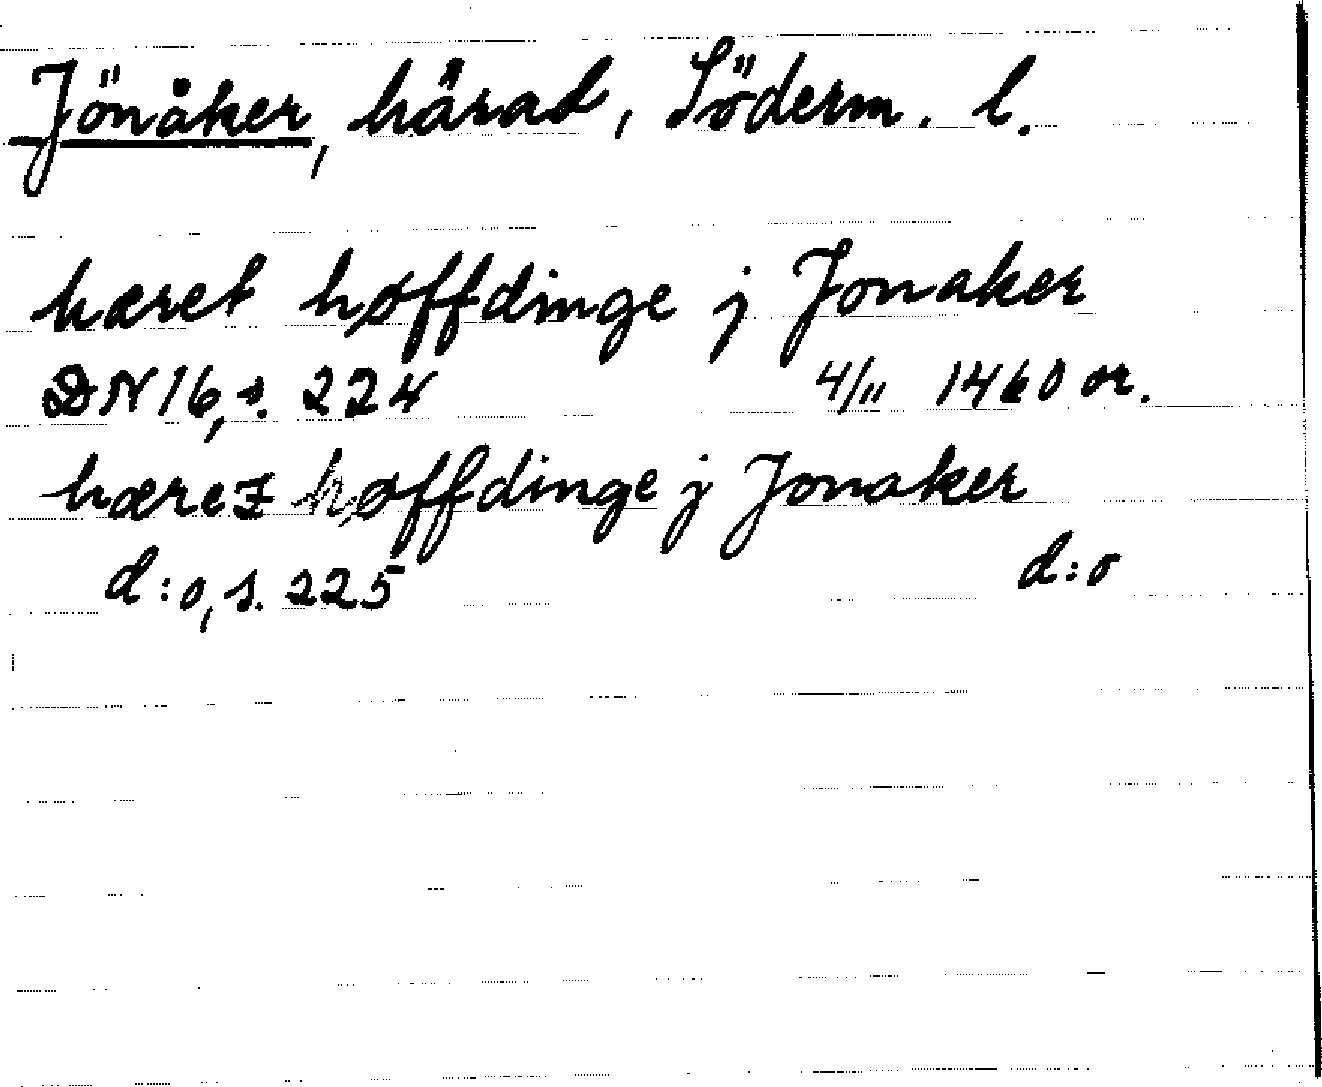 Jönåker, härad, Söderm. l.
hæret høffdinge j Jonaker
DN 16, s. 224 4/11 1460 or.
hærez høffdinge j Jonaker
d:o, s. 225 d:o